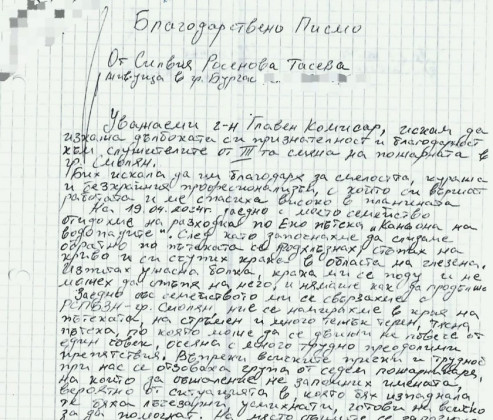 Благодарствено Писмо
От Силвия Росенова Тасева
живуща в гр. Бургас
Уважаеми г-н Главен Комисар, искам да
изкажа дълбоката си признателност и благодарност
към служителите от III та смяна на пожарната в
гр. Смолян.
Бих искала да им благодаря за смелостта, куража
и безкрайния професионализъм, с който си вършат
работата и ме спасиха високо в планината
На 19.04.2024г. заедно с моето семейство
отидохме на разходка по Еко пътека "Каньона на
водопадите". След като започнахме да слизаме
обратно по пътеката се подхлъзнах, стъпих на
криво и си счупих крака в областта на глезена.
Изпитах ужасна болка, крака ми се поду и не
можех да стъпя на него, и нямаше как да продължа
Заедно със семейството ми се свързахме с
РСПБЗН-гр. Смолян, ние се намирахме в края на
пътеката, на стръмен и много тежък терен, тясна
пътека, по която може да се движи не повече от
един човек, осеяна с много трудно преодолими
препятствия. Въпреки всичките рискове и трудности
при нас се отзоваха група от седем пожарникаря,
на които за съжаление не запомних имената,
вероятно от ситуацията в, която бях изпаднала
Те бяха лъчезарни, усмихнати, готови на всичко
за да помогнат. На място